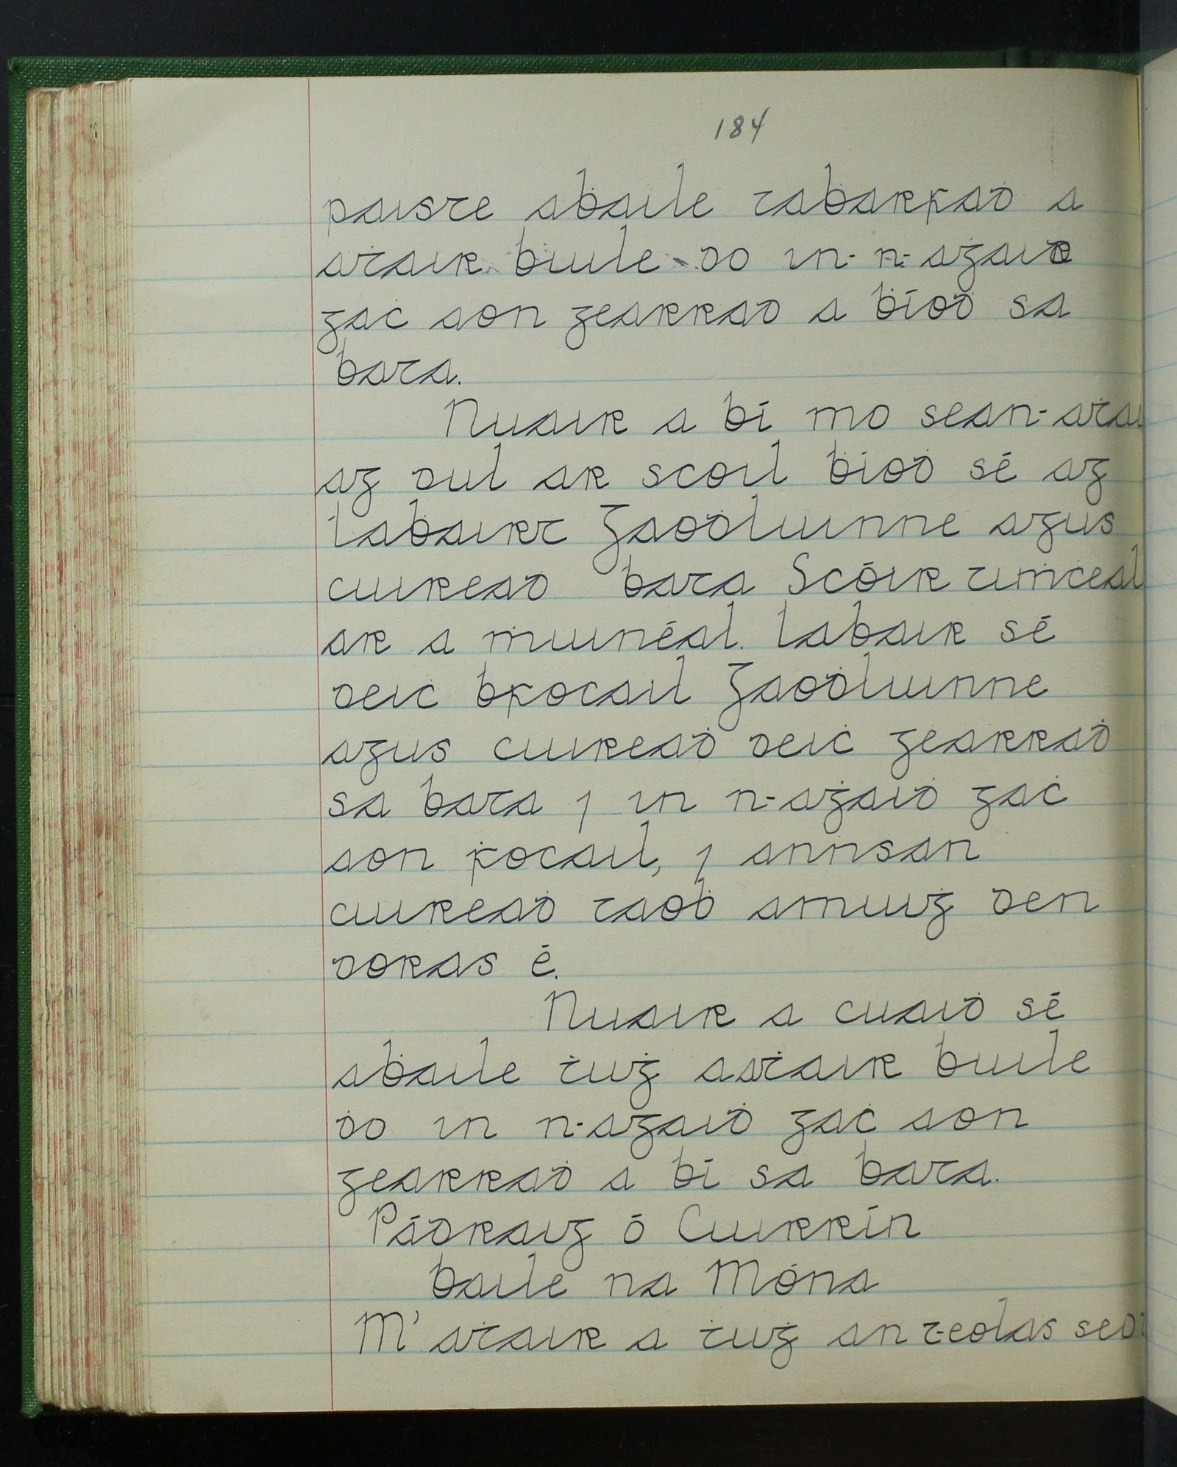 184
páisde abaile ṫabarfaḋ a
aṫair buile do in-n-aġaiḋ
gaċ aon gearraḋ a bíoḋ sa
bata.
Nuair a bí mo sean-aṫai
ag dul ar scoil bioḋ sé ag
labairt Gaoḋluinne agus
cuireaḋ bata Scóir timċeal
ar a ṁuinéal. labair sé
deiċ bfocail Gaoḋluinne
agus cuireaḋ deiċ gearraḋ
sa bata ⁊ in n-aġaiḋ gaċ
aon focail, ⁊ annsan
cuireaḋ taoḃ amuiġ den
doras é.
Nuair a cuaiḋ sé
abaile ṫug a aṫair buile
do in n-aġaiḋ gaċ aon
gearraḋ a bí sa bata.
Pádraig ó Cuirrín
baile na Móna
M'aṫair a ṫug an t-eolas seo